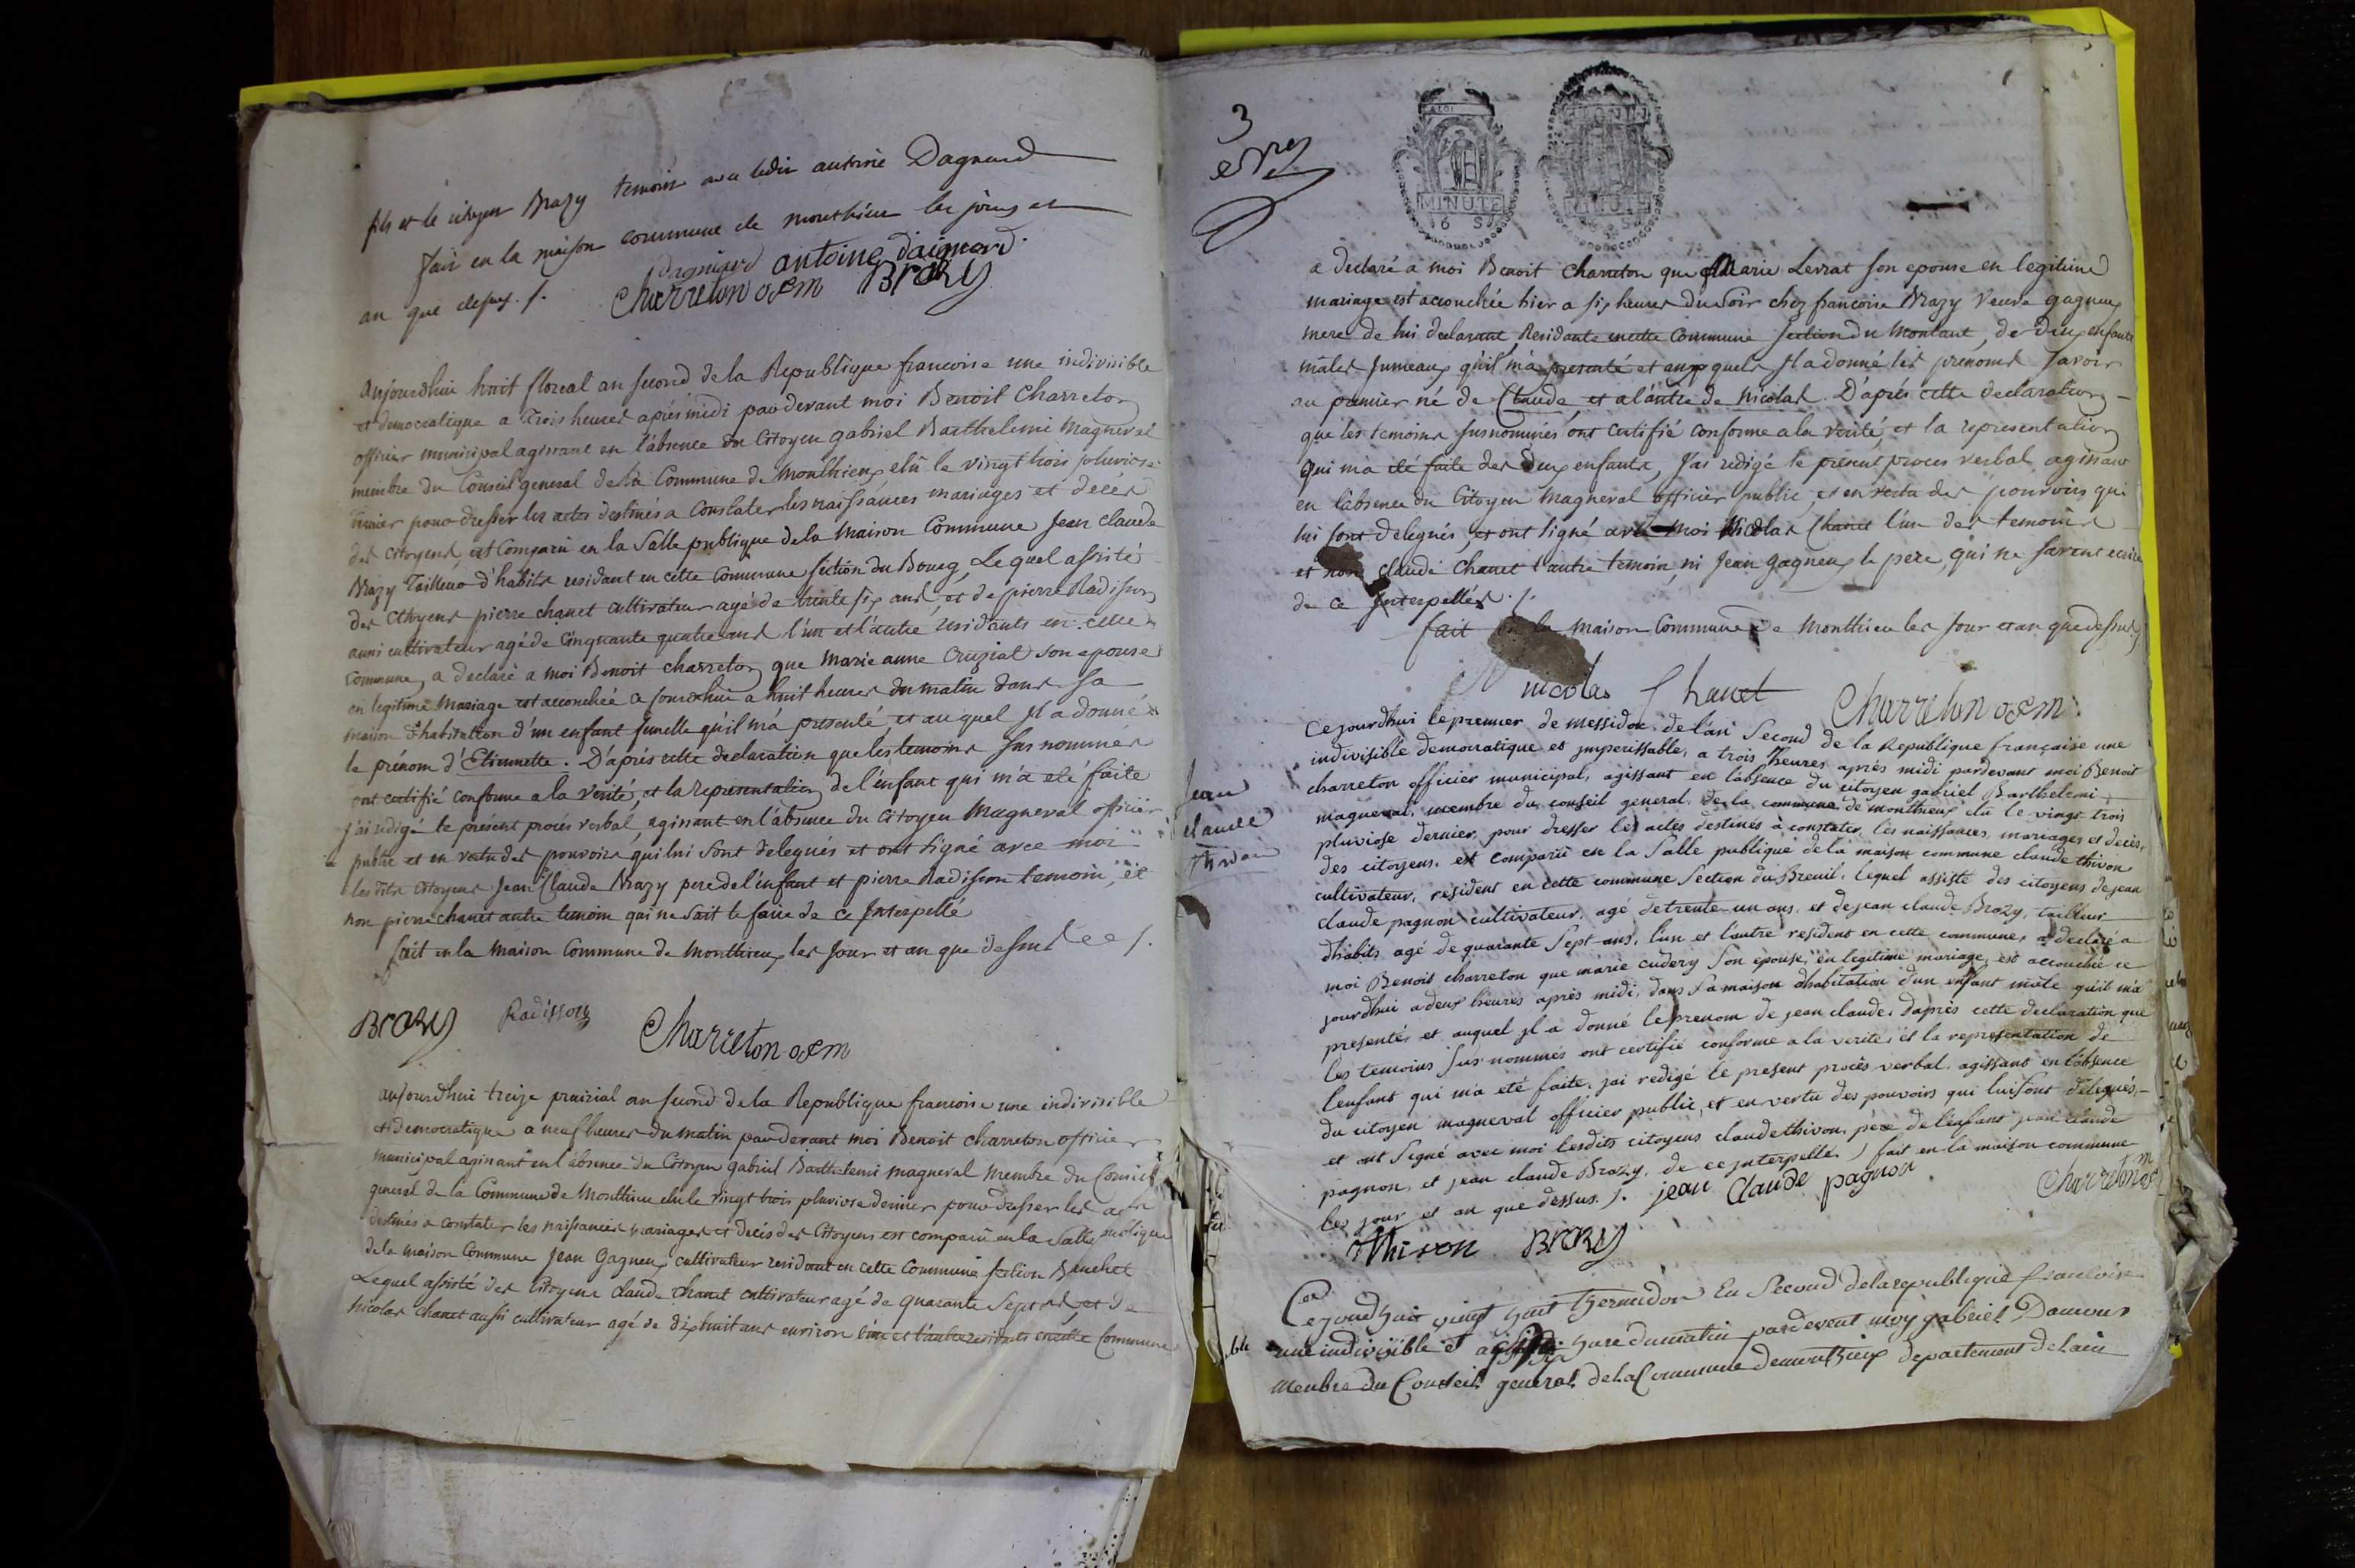 fils et le citoyen Brazy temoins avec ledit antoine Dagnard
fait en la maison commune de monthieu les jours et
an que dessus ./.
Dagniard antoine daignard
Charreton oem Brazy
aujourdhui huit floreal an second de la Republique francoise une indivisible
et democratique a trois heures aprés midi pardevant moi Benoit Charreton
officier municipal agissant en l'absence du Citoyen gabriel Barthelemi Magneval
membre du Conseil general de la Commune de Monthieux elû le vingt trois pluviose
dernier pour dresser les actes destinés a Constater les naissances mariages et decés
des citoyens, est Comparû en la Salle publique de la Maison Commune Jean Claude
Brazy Tailleur d'habits residant en cette Commune section du Bourg, Lequel assisté
des Citoyens pierre chanet cultivateur agé de trente six ans, et de pierre Radisson
aussi cultivateur agé de Cinquante quatre ans l'un et l'autre residants en cette
Commune, a declaré a moi Benoit charreton que Marie anne Cruziat son epouse
en legitime Mariage est accouchée a jourdhui a huit heures du matin dans sa
maison d'habitation d'un enfant femelle qu'il m'a presenté, et au quel Jl a donné
le prénom d'Etiennette. D'aprés cette declaration que les temoins sus nommés
ont certifié conforme a la verité, et la representation de l'enfant qui m'a eté faite
j'ai redigé le présent procés verbal, agissant en l'absence du Citoyen Magneval officier
public et en vertu des pouvoirs qui lui sont delegués et ont signé avec moi
les dits Citoyens Jean Claude Brazy pere de l'enfant et pierre Radisson temoin, et
non pierre chanet autre temoin qui ne sait le faire de ce Jnterpellé
fait en la Maison Commune de Monthieux les Jour et an que dessus ./.
Brazy Radisson
Charreton oem
aujourdhui treize prairial an second de la Republique francoise une indivisible
et democratique a neuf heures du matin pardevant moi Benoit charreton officier
municipal agissant en l'absence du Citoyen gabriel Barthelemi magneval membre du Conseil
general de la Commune de Monthieu elu le vingt trois pluviose dernier pour dresser les actes
destinés a constater les naissances mariages et decés des Citoyens est comparû en la Salle publique
de la maison Commune Jean Gagneux cultivateur residant en cette Commune section
Lequel assisté des Citoyens Claude Chanet cultivateur agé de quarante Sept ans, et de
Nicolas chanet aussi cultivateur agé de dixhuit ans environ l'un et l'autre residants en cette Commune
3
MINUTE
MINUTE
a declaré a moi Benoit Charreton que Marie Levrat son epouse en legitime
mariage est accouchée hier a six heures du soir chez francoise Brazy veuve gagneux
mere de lui declarant, Residante en cette Commune section du Montant, de deux enfants
mâles Jumeaux qu'il m'a presenté et aux quels Jl a donné les prenoms savoir
au premier né de Claude et a l'autre de Nicolas. D'aprés cette declaration
que les temoins susnommés ont certifié conforme a la verité, et la representation
qui m'a eté faite des deux enfants, J'ai redigé le present proces verbal agissant
en l'absence du Citoyen Magneval officier public, et en vertu des pouvoirs qui
lui sont delegués, et ont signé avec moi Nicolas Chanet l'un des temoins
et non Claude Chanet l'autre temoin, ni Jean gagneux le pere, qui ne savent ecrire
de ce Jnterpellés ./.
fait en la Maison Commune de Monthieu les Jour et an que dessus
nicolas Chanet Charreton oem
Jean
claude
thivon
Cejourdhui le premier de messidor de l'an Second de la Republique française une
indivisible democratique et jmperissable, a trois heures aprés midi pardevant moi Benoit
charreton officier municipal, agissant en l'absence du citoyen gabriel Barthelemi
magneval, membre du conseil general de la commune de monthieux elu le vingt trois
pluviose dernier, pour dresser les actes destinés à constater les naissances, mariages et decés,
des citoyens, est comparû en la Salle publique de la maison commune claude thivon
cultivateur, resident en cette commune Section du Breuil, lequel assisté des citoyens de jean
claude pagnon cultivateur, agé de trente un ans, et de jean claude Brazy, tailleur
dhabits agé de quarante Sept ans, l'un et l'autre resident en cette commune, a declaré a
moi Benoit charreton que marie cudery Son epouse, en legitime mariage, est accouchée ce
jourdhui a deux heures aprés midi, dans Sa maison dhabitation d'un enfant mâle qu'il m'a
presentés et auquel jl a donné le prenom de jean claude, daprés cette declaration que
les temoins Sus nommés ont certifié conforme a la verité, et la representation de
lenfant qui m'a eté faite, jai redigé le present procés verbal, agissant en l'absence
du citoyen magneval officier public, et en vertu des pouvoirs qui lui Sont delegués,
et ont Signé avec moi lesdits citoyens claude thivon, pére de l'enfant jean claude
pagnon, et jean claude Brazy, de ce jnterpellé) fait en la maison commune
les jour et an que dessus ./. jean Claude pagnon Charreton oem
Thivon Brazy
Cejourdhui vingt huit thermidor En Second de la republique francoise
une indivisible et a dix hure du matin pardevent moy gabriel Damour
Menbre du Conseil general de la Commune de monthieux departement de lain